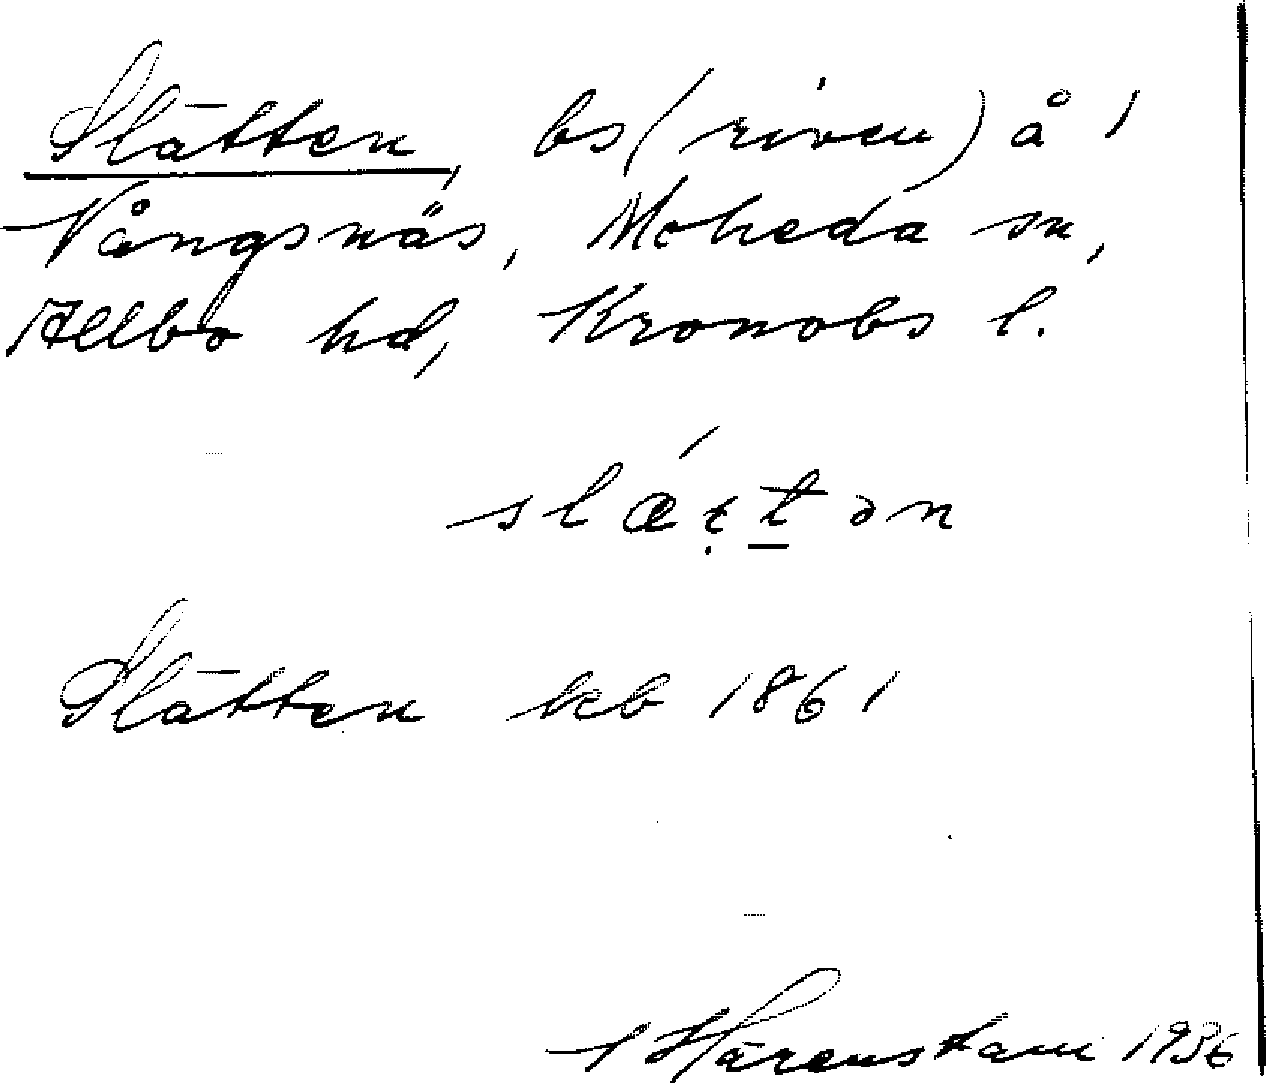 Slätten, bs (riven) å 1
Vångsnäs, Moheda sn,
Allbo hd, Kronobs l.
slǽɛ̣t̲ən
Slätten kb 1861
Härenstam 1936